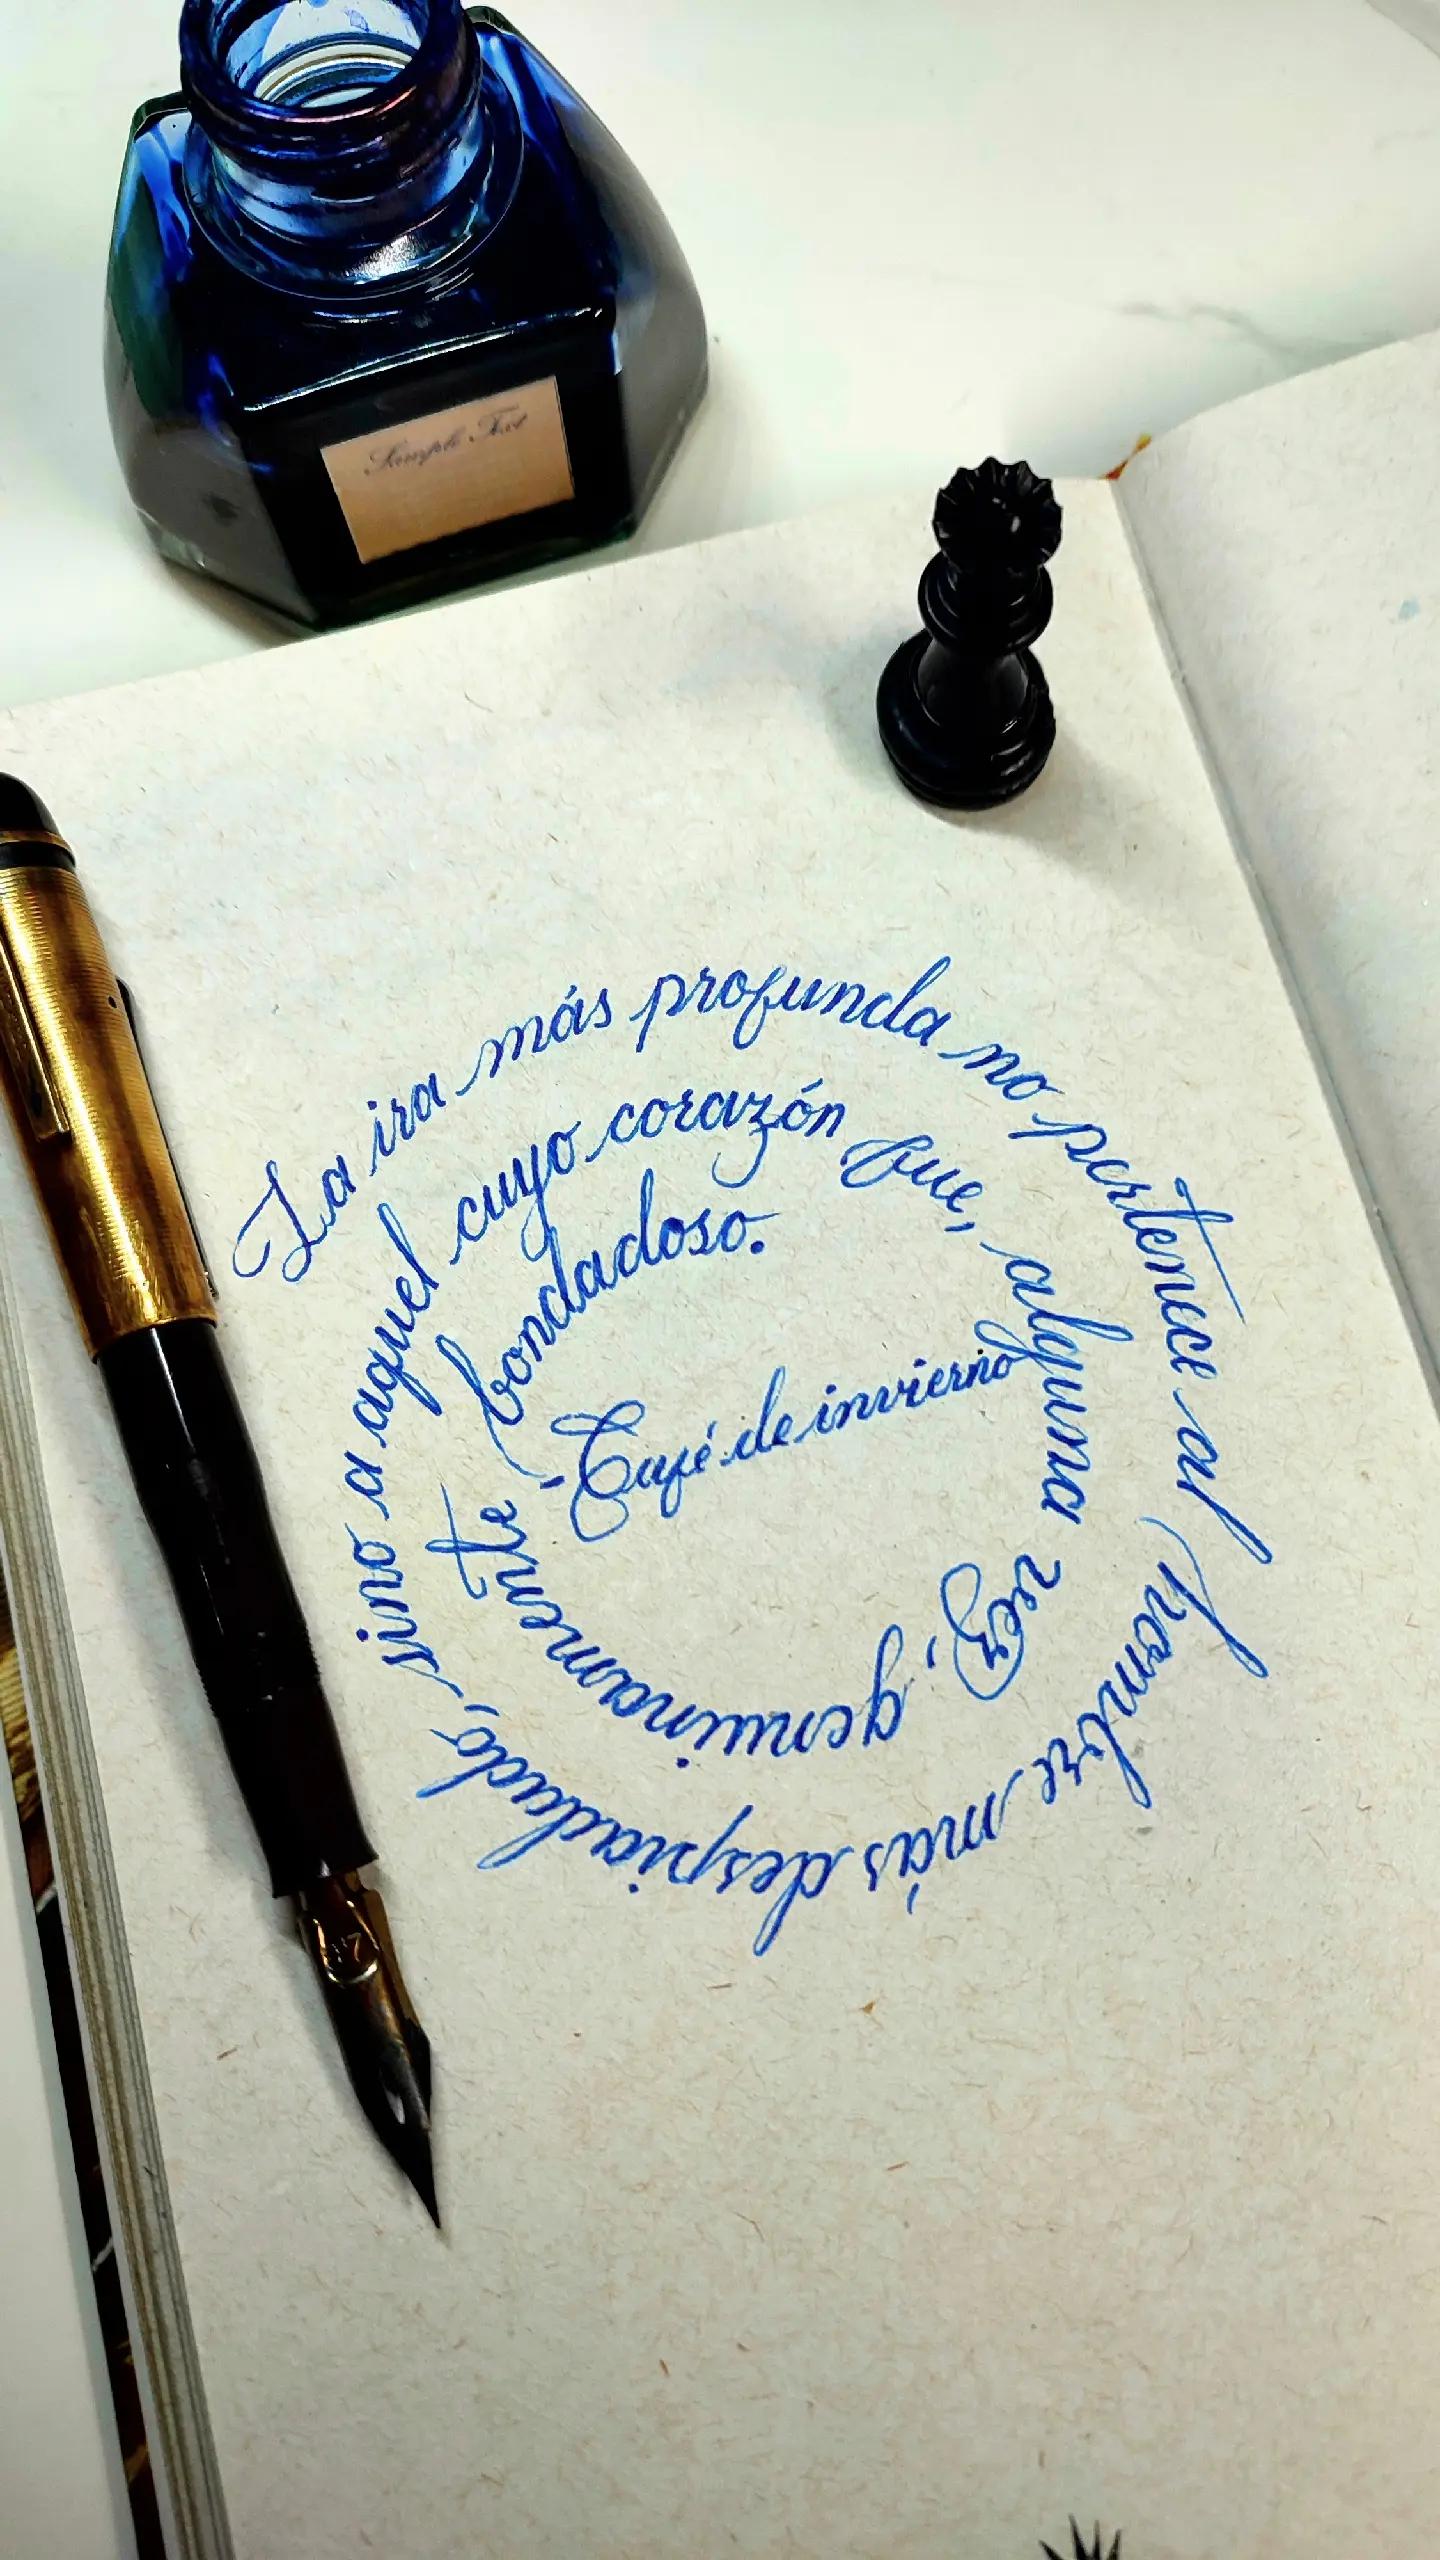 Sample Text
La ira más profunda no pertenece al hombre más despiadado, sino a aquel cuyo corazón fue, alguna vez, genuinamente bondadoso.
Café de invierno